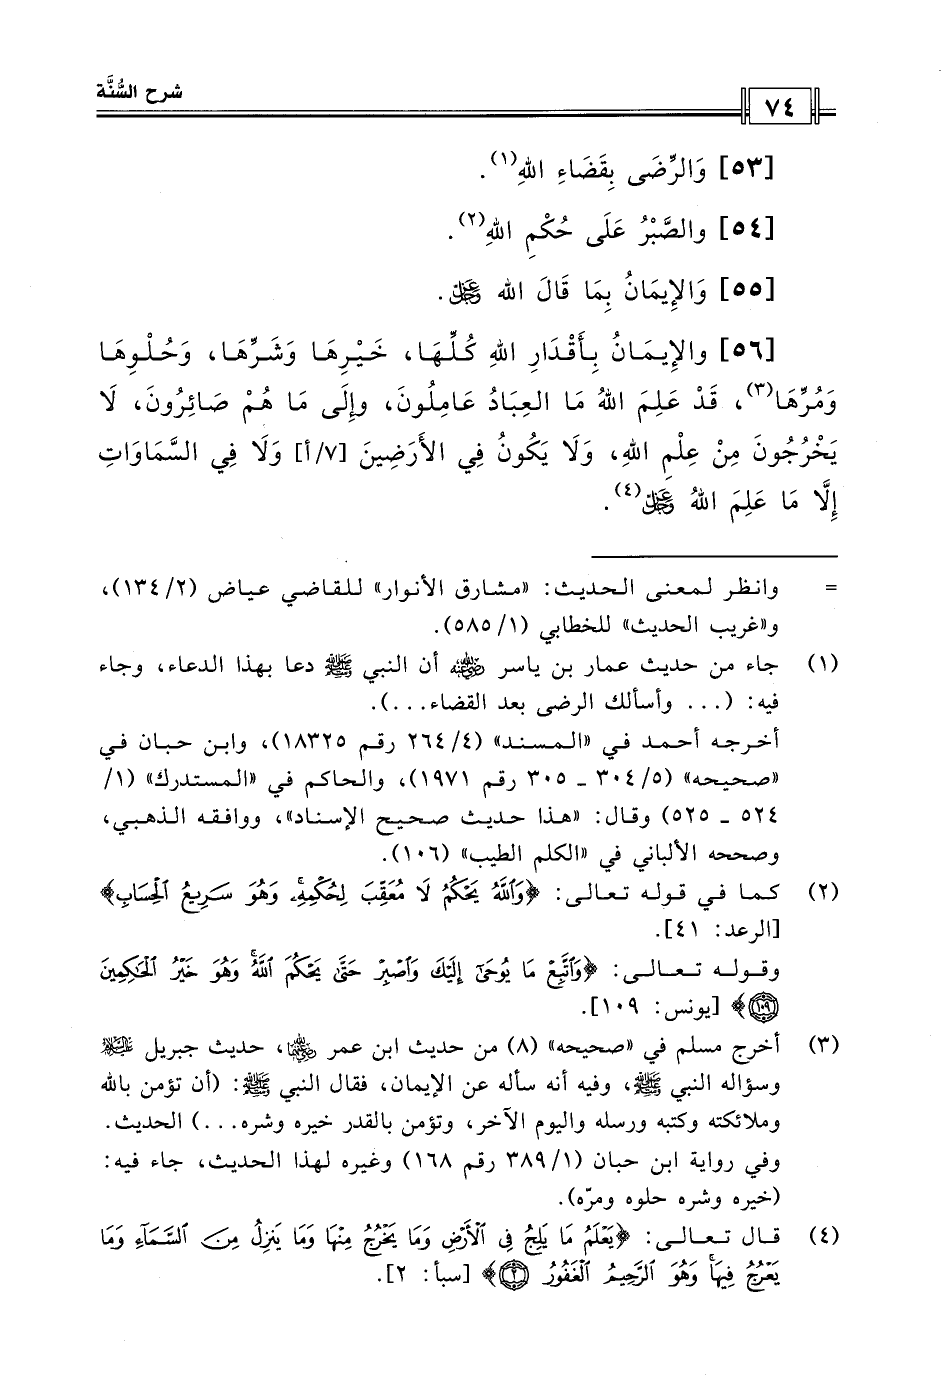 شرح السُّنَّة
٧٤
[٥٣] وَالرِّضَى بِقَضَاءِ اللهِ(١).
[٥٤] والصَّبْرُ عَلَى حُكْمِ اللهِ(٢).
[٥٥] وَالإِيمَانُ بِمَا قَالَ الله عَزَّوَجَلَّ.
[٥٦] والإِيمَانُ بِأَقْدَارِ اللهِ كُلِّهَا، خَيْرِهَا وَشَرِّهَا، وَحُلْوِهَا
وَمُرِّهَا(٣)، قَدْ عَلِمَ اللهُ مَا العِبَادُ عَامِلُونَ، وإِلَى مَا هُمْ صَائِرُونَ، لَا
يَخْرُجُونَ مِنْ عِلْمِ اللهِ، وَلَا يَكُونُ فِي الأَرَضِينَ [٧/أ] وَلَا فِي السَّمَاوَاتِ
إِلَّا مَا عَلِمَ اللهُ عَزَّوَجَلَّ(٤).
= وانظر لمعنى الحديث: «مشارق الأنوار» للقاضي عياض (١٣٤/٢)،
و«غريب الحديث» للخطابي (٥٨٥/١).
(١) جاء من حديث عمار بن ياسر رضي الله عنه أن النبي ﷺ دعا بهذا الدعاء، وجاء
فيه: (... وأسألك الرضى بعد القضاء...).
أخرجه أحمد في «المسند» (٢٦٤/٤ رقم ١٨٣٢٥)، وابن حبان في
«صحيحه» (٣٠٤/٥ ـ ٣٠٥ رقم ١٩٧١)، والحاكم في «المستدرك» (١/
٥٢٤ ـ ٥٢٥) وقال: «هذا حديث صحيح الإسناد»، ووافقه الذهبي،
وصححه الألباني في «الكلم الطيب» (١٠٦).
(٢) كما في قوله تعالى: ﴿وَٱللَّهُ يَحْكُمُ لَا مُعَقِّبَ لِحُكْمِهِۦۚ وَهُوَ سَرِيعُ ٱلْحِسَابِ﴾
[الرعد: ٤١].
وقوله تعالى: ﴿وَٱتَّبِعْ مَا يُوحَىٰٓ إِلَيْكَ وَٱصْبِرْ حَتَّىٰ يَحْكُمَ ٱللَّهُۚ وَهُوَ خَيْرُ ٱلْحَٰكِمِينَ
١٠٩﴾ [يونس: ١٠٩].
(٣) أخرج مسلم في «صحيحه» (٨) من حديث ابن عمر رضي الله عنهما، حديث جبريل عليه السلام
وسؤاله النبي ﷺ، وفيه أنه سأله عن الإيمان، فقال النبي ﷺ: (أن تؤمن بالله
وملائكته وكتبه ورسله واليوم الآخر، وتؤمن بالقدر خيره وشره...) الحديث.
وفي رواية ابن حبان (٣٨٩/١ رقم ١٦٨) وغيره لهذا الحديث، جاء فيه:
(خيره وشره حلوه ومرّه).
(٤) قال تعالى: ﴿يَعْلَمُ مَا يَلِجُ فِى ٱلْأَرْضِ وَمَا يَخْرُجُ مِنْهَا وَمَا يَنزِلُ مِنَ ٱلسَّمَآءِ وَمَا
يَعْرُجُ فِيهَاۚ وَهُوَ ٱلرَّحِيمُ ٱلْغَفُورُ ٢﴾ [سبأ: ٢].